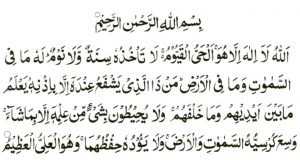 بِسْمِ اللهِ الرَّحْمٰنِ الرَّحِيْمِ
اَللهُ لَا اِلٰهَ اِلَّا هُوَ ۚ اَلْحَيُّ الْقَيُّوْمُ ۚ لَا تَأْخُذُهٗ سِنَةٌ وَّلَا نَوْمٌ ؕ لَهٗ مَا فِى
السَّمٰوٰتِ وَمَا فِى الْاَرْضِ ؕ مَنْ ذَا الَّذِىْ يَشْفَعُ عِنْدَهٗٓ اِلَّا بِاِذْنِهٖ ؕ يَعْلَمُ
مَا بَيْنَ اَيْدِيْهِمْ وَمَا خَلْفَهُمْ ۚ وَلَا يُحِيْطُوْنَ بِشَىْءٍ مِّنْ عِلْمِهٖٓ اِلَّا بِمَا شَآءَ ۚ
وَسِعَ كُرْسِيُّهُ السَّمٰوٰتِ وَالْاَرْضَ ۚ وَلَا يَئُوْدُهٗ حِفْظُهُمَا ۚ وَهُوَ الْعَلِىُّ الْعَظِيْمُ